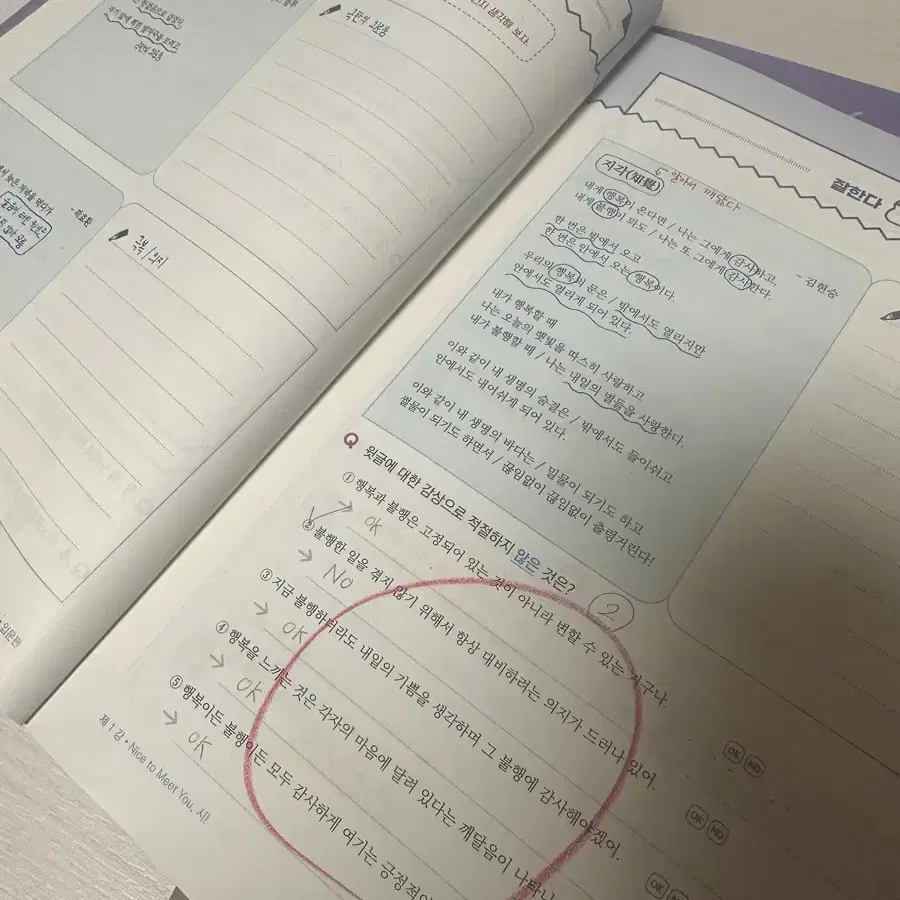 생각해 보자.
극판의 고요
목요판
극복 / 의지
입문편
잘한다
지각(知覺)
알아서 깨닫다
- 김현승
내게 행복이 온다면 / 나는 그에게 감사하고,
내게 불행이 와도 / 나는 또 그에게 감사한다.
한 번은 밖에서 오고
한 번은 안에서 오는 행복이다.
우리의 행복의 문은 / 밖에서도 열리지만
안에서도 열리게 되어 있다.
내가 행복할 때
나는 오늘의 햇빛을 따스히 사랑하고
내가 불행할 때 / 나는 내일의 별들을 사랑한다.
이와 같이 내 생명의 숨결은 / 밖에서도 들이쉬고
안에서도 내어쉬게 되어 있다.
이와 같이 내 생명의 바다는 / 밀물이 되기도 하고
썰물이 되기도 하면서 / 끊임없이 끊임없이 출렁거린다!
Q 윗글에 대한 감상으로 적절하지 않은 것은?
2
① 행복과 불행은 고정되어 있는 것이 아니라 변할 수 있는 거구나.
→ OK
OK NO
② 불행한 일을 겪지 않기 위해서 항상 대비하려는 의지가 드러나 있어.
→ NO
OK NO
③ 지금 불행하더라도 내일의 기쁨을 생각하며 그 불행에 감사해야겠어.
→ OK
OK
④ 행복을 느끼는 것은 각자의 마음에 달려 있다는 깨달음이 나타나
→ OK
⑤ 행복이든 불행이든 모두 감사하게 여기는 긍정적
→ OK
제 1 강 • Nice to Meet You, 시!